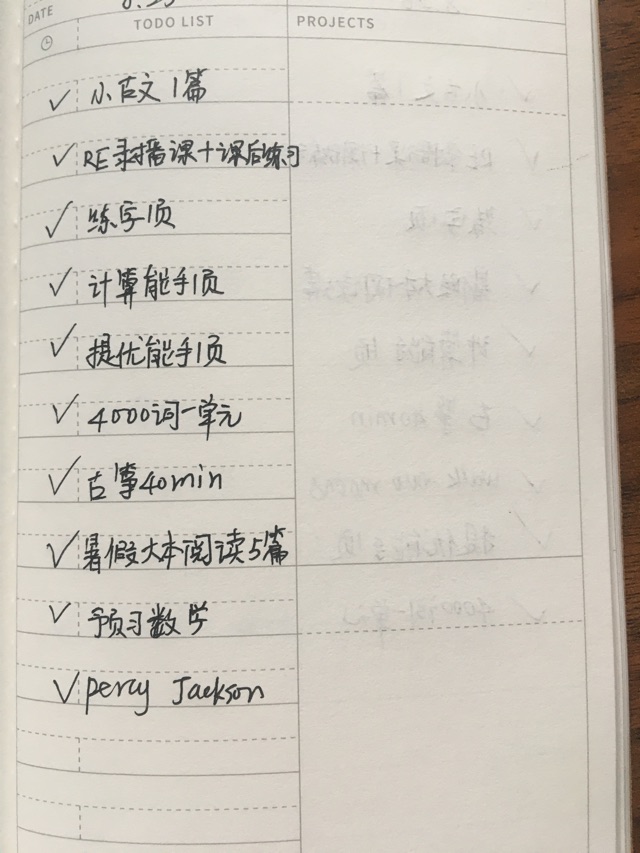 DATE
TODO LIST
PROJECTS
✓ 小古文1篇
✓ RE录播课+课后练习
✓ 练字1页
✓ 计算能手1页
✓ 提优能手1页
✓ 4000词一单元
✓ 古筝40min
✓ 暑假大本阅读5篇
✓ 预习数学
✓ Percy Jackson